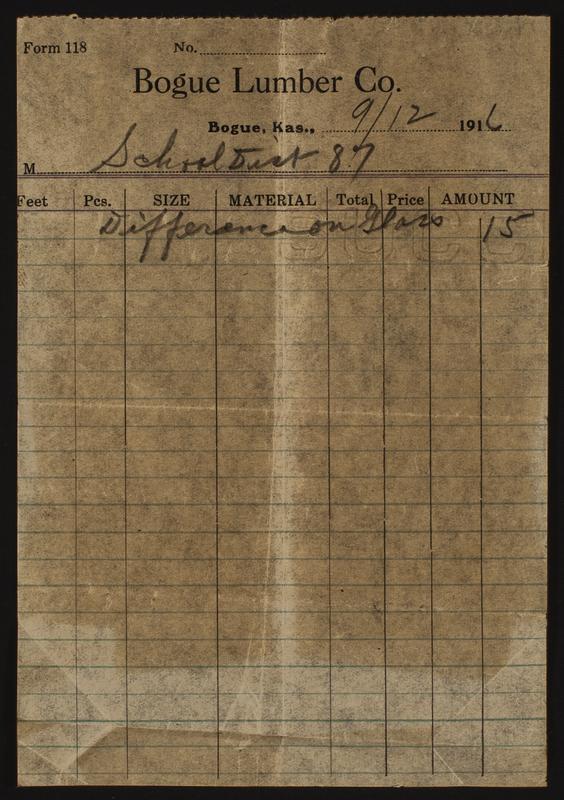 Form 118 No.
Bogue Lumber Co.
Bogue, Kas., 9/12 1916
M School Dist 87
Feet Pcs. SIZE MATERIAL Total Price AMOUNT
Difference on Glass 15